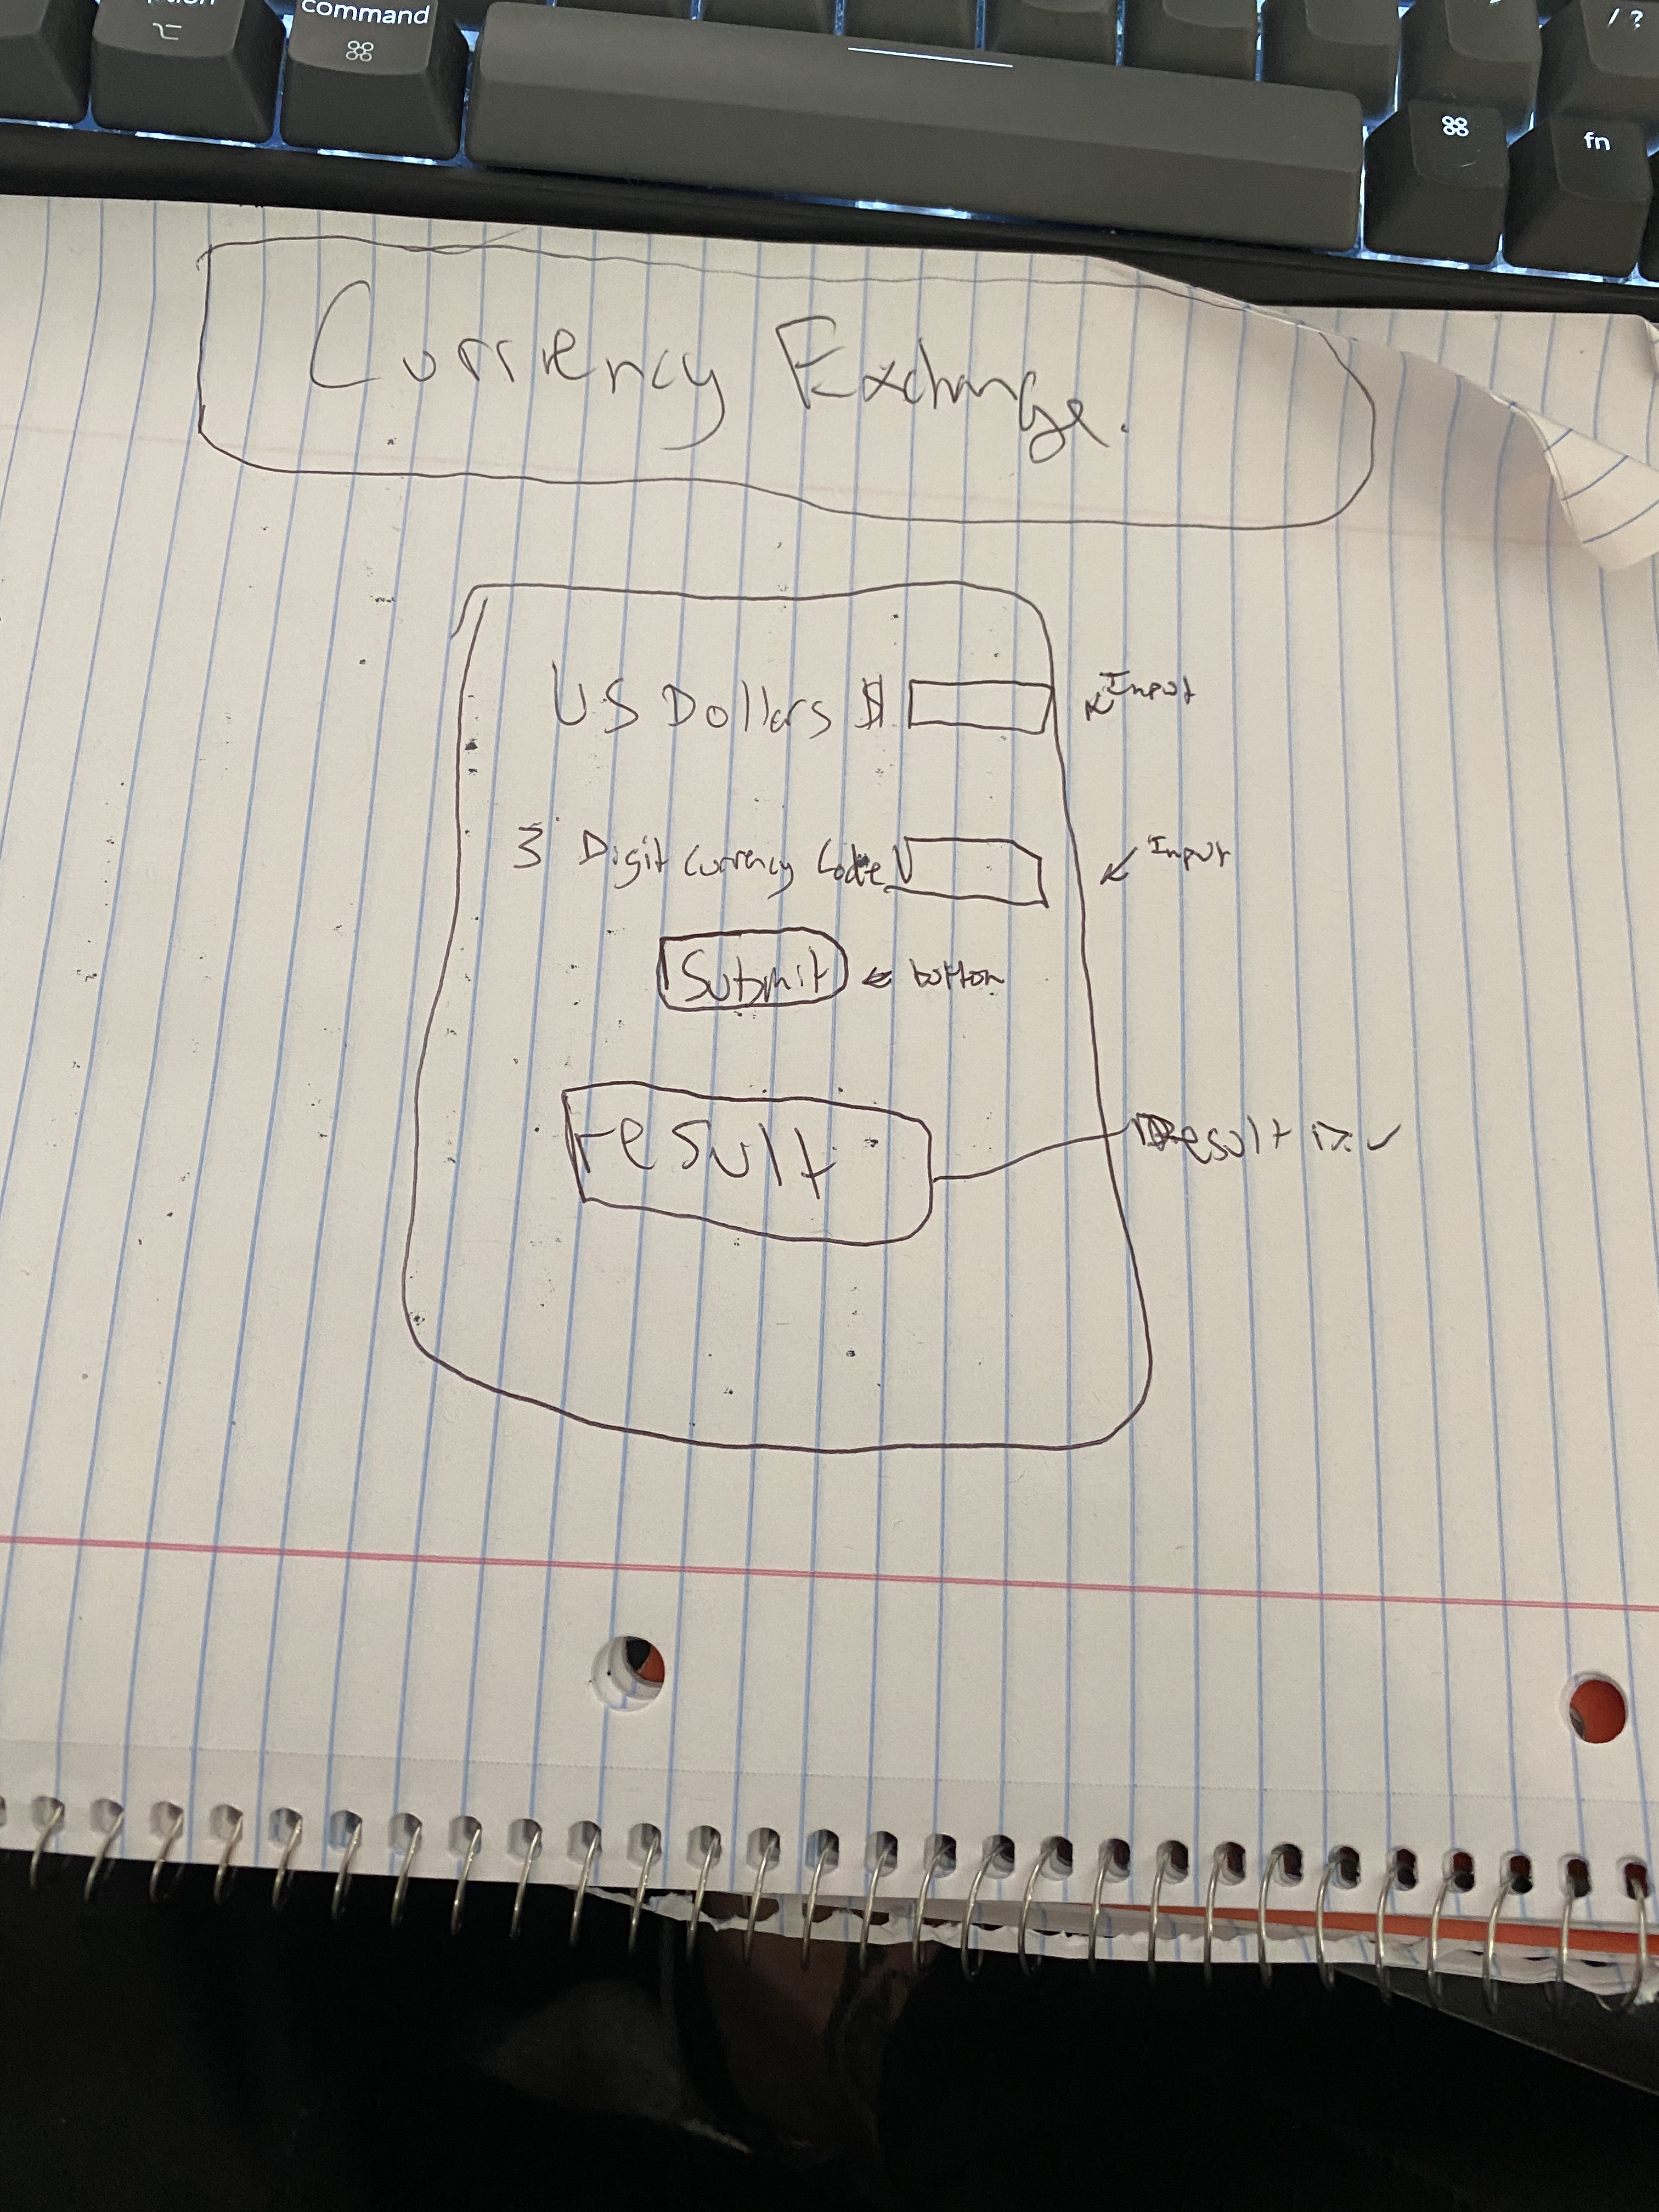 command
⌥
⌘
/ ?
⌘
fn
Currency Exchange.
US Dollars $
Input
3 Digit Currency Code
Input
Submit
button
result
Result